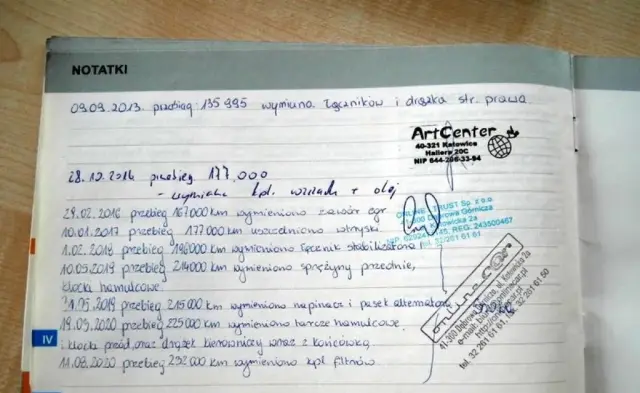 NOTATKI
09.09.2013. przebieg 135 995 wymiana łączników i drążka str. prawa
ArtCenter
40-321 Katowice
Hallera 20C
NIP 644-206-33-94
28.10.2016 przebieg 177.000
- wymiana kpl. +olej
29.02.2016 przebieg 167000 km wymieniono zawór egr
10.01.2017 przebieg 177000 km uszczelniono wtryski
1.02.2018 przebieg 198000 km wymieniono łącznik stabilizatora
10.05.2019 przebieg 214000 km wymieniono sprężyny przednie,
klocki hamulcowe.
31.05.2019 przebieg 215000 km wymieniono napinacz i pasek alternatora
19.03.2020 przebieg 225000 km wymieniono tarcze hamulcowe
i klocki przód, oraz drążek kierowniczy wraz z końcówką
11.08.2020 przebieg 232000 km wymieniono kpl filtrów.
TRUST Sp. z o.o.
Dąbrowa Górnicza
tel. 32/261 61 61
41-300 Dąbrowa Górnicza, ul. Katowicka 2a
tel. 32 261 61 61, 32 261 61 50
IV